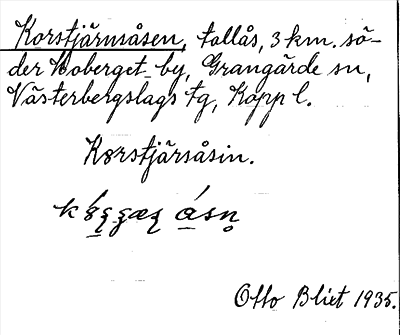 Korstjärnsåsen, tallås, 3 km. sö-
der Moberget by, Grangärde sn,
Västerbergslags tg, Kopp l.
Kørstjärsåsin.
Otto Blixt 1935.